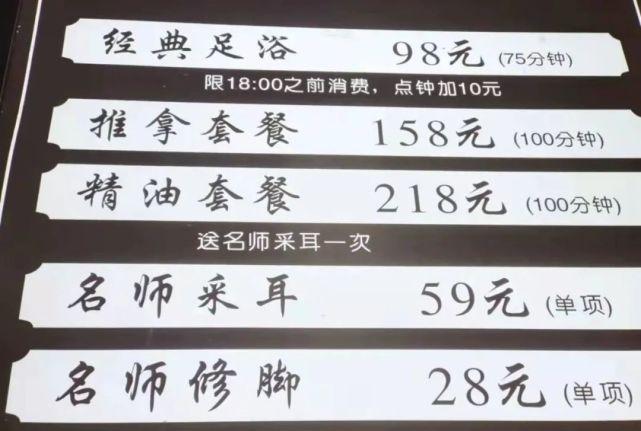 经典足浴 98元 (75分钟)
限18:00之前消费，点钟加10元
推拿套餐 158元 (100分钟)
精油套餐 218元 (100分钟)
送名师采耳一次
名师采耳 59元 (单项)
名师修脚 28元 (单项)